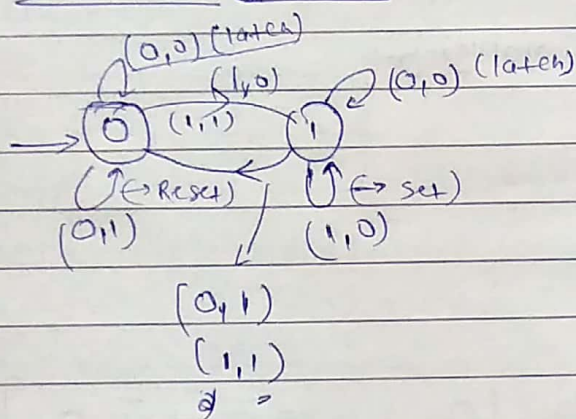 (0,0) (latch)
(1,0)
(0,0) (latch)
0 (1,1) 1
(→ Reset) (→ set)
(0,1) (1,0)
(0,1)
(1,1)